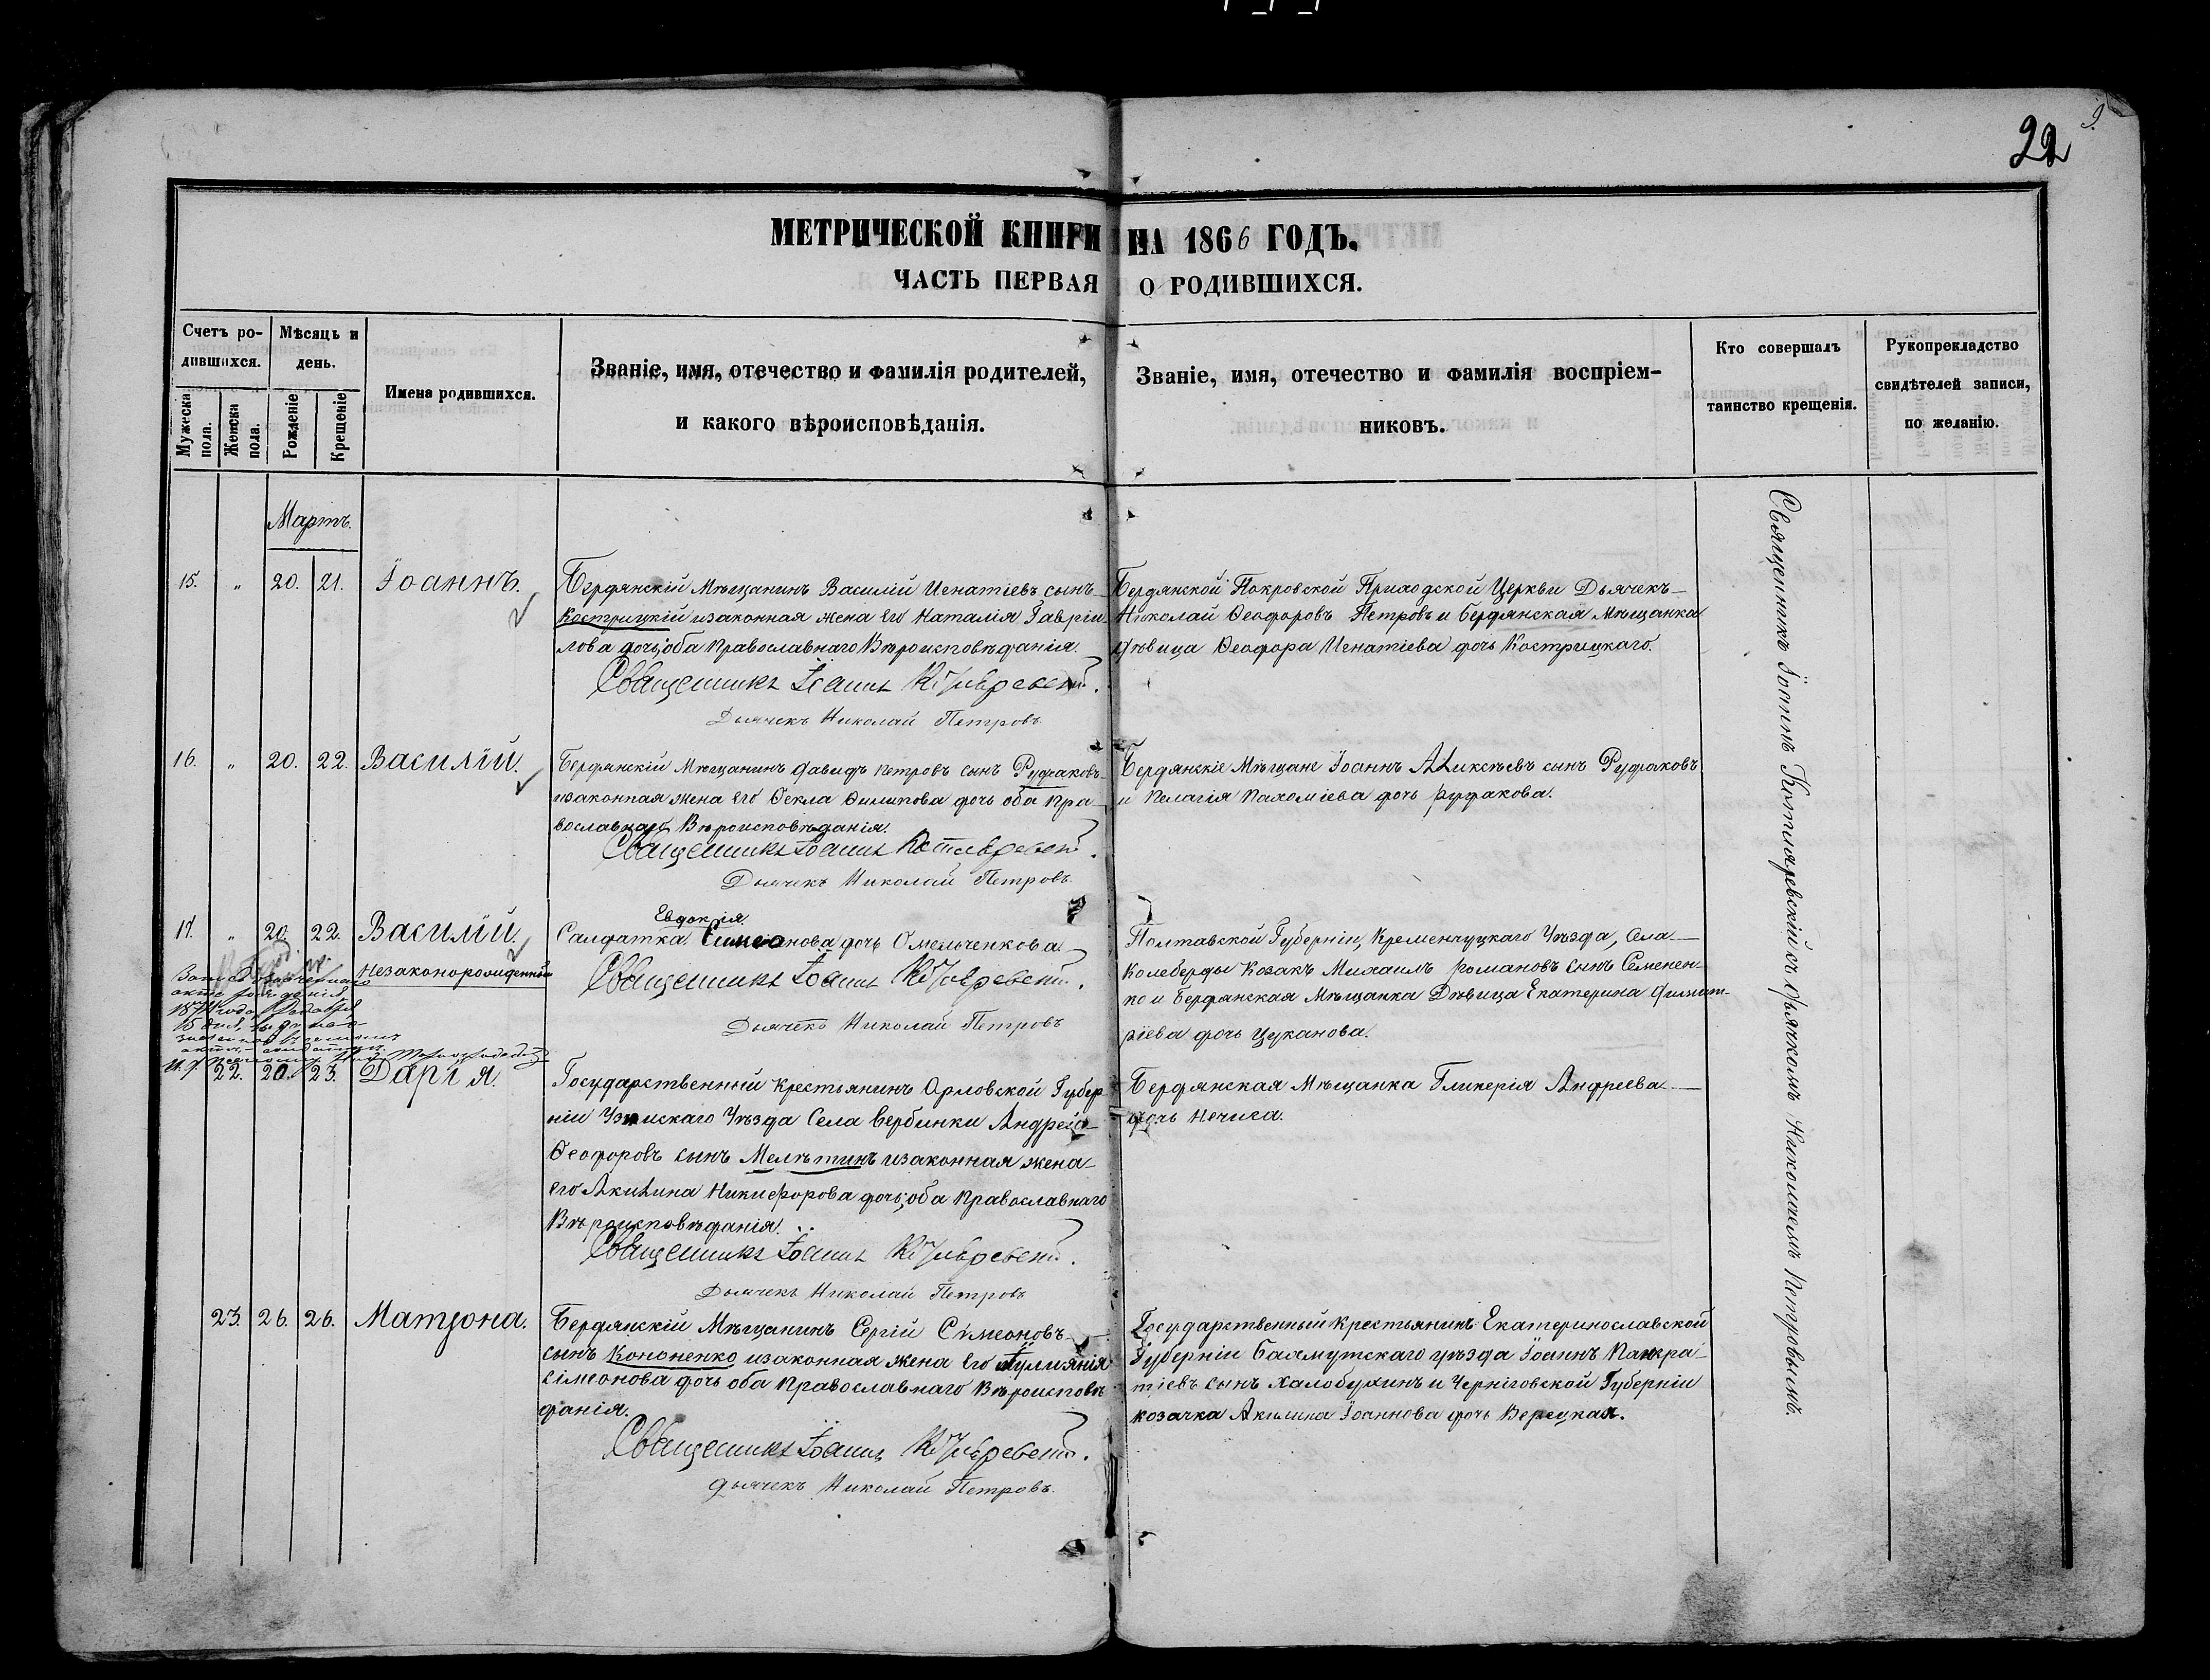 22
9.
МЕТРИЧЕСКОЙ КНИГИ НА 1866 ГОДЪ.
ЧАСТЬ ПЕРВАЯ О РОДИВШИХСЯ.
Счетъ ро-
дившихся.
Мужеска пола.
Женска пола.
Мѣсяцъ и
день.
Рожденіе
Крещеніе
Имена родившихся.
Званіе, имя, отечество и фамилія родителей,
и какого вѣроисповѣданія.
Званіе, имя, отечество и фамилія воспріем-
никовъ.
Кто совершалъ
таинство крещенія.
Рукоприкладство
свидѣтелей записи,
по желанію.
Мартъ.
15. „ 20. 21. Іоаннъ.
Бердянскій Мѣщанинъ Василій Игнатіевъ сынъ
Кострицкій изаконная жена его Наталія Гавріи-
лова дочь, оба Православнаго Вѣроисповѣданія.
Священникъ Іоаннъ Котляревскій.
Дьячекъ Николай Петровъ
Бердянской Покровской Приходской Церкви Дьячекъ
Николай Ѳеодоровъ Петровъ и Бердянская Мѣщанка
дѣвица Ѳеодора Игнатіева дочь Кострицкаго.
16. „ 20. 22. Василій.
Бердянскій Мѣщанинъ Давидъ Петровъ сынъ Рудаковъ
изаконная жена его Ѳекла Филипова дочь оба Пра-
вославнаго Вѣроисповѣданія.
Священникъ Іоаннъ Котляревскій.
Дьячекъ Николай Петровъ
Бердянскіе Мѣщане Іоаннъ Аликсѣевъ сынъ Рудаковъ
и Пелагія Пахоміева дочь Рудакова.
17. „ 20. 22. Василій.
Незаконорожденный
Евдокія
Салдатка Симеонова дочь Омельченкова
Священникъ Іоаннъ Котляревскій.
Дьячекъ Николай Петровъ
Полтавской Губерніи, Кременчуцкаго Уѣзда, Села
Колеберды Козакъ Михаилъ Романовъ сынъ Семенен-
ко и Бердянская Мѣщанка Дѣвица Екатерина Димит-
ріева дочь Цуканова.
22. 20. 23. Дарія.
Государственный крестьянинъ Орловской Губер-
ніи Уѣзда Села Вербинки Андрей
Ѳеодоровъ сынъ Мелѣтинъ изаконная жена
его Акилина Никифорова дочь; оба Православнаго
Вѣроисповѣданія.
Священникъ Іоаннъ Котляревскій.
Дьячекъ Николай Петровъ
Бердянская Мѣщанка Гликерія Андреева
дочь Нечиса.
23. 26. 26. Матрона.
Бердянскій Мѣщанинъ Сергій Сѵмеоновъ
сынъ Кононенко изаконная жена его Іулианія
Сімеонова дочь оба Православнаго Вѣроисповѣ
данія.
Священникъ Іоаннъ Котляревскій.
Дьячекъ Николай Петровъ
Государственный крестьянинъ Екатеринославской
Губерніи Бахмутскаго уѣзда Іоаннъ Панкра-
тіевъ сынъ Халобудинъ и Черніговской Губерніи
козачка Акилина Іоаннова дочь Верецкая.
Священникъ Іоаннъ Котляревскій съ дьячкомъ Николаемъ Петровымъ.